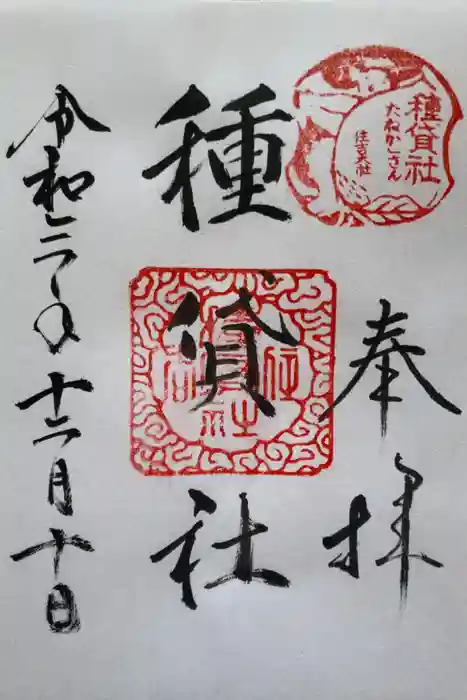 奉拝
種貸社
たねかしさん
住吉大社
種貸社
令和二年十二月十日